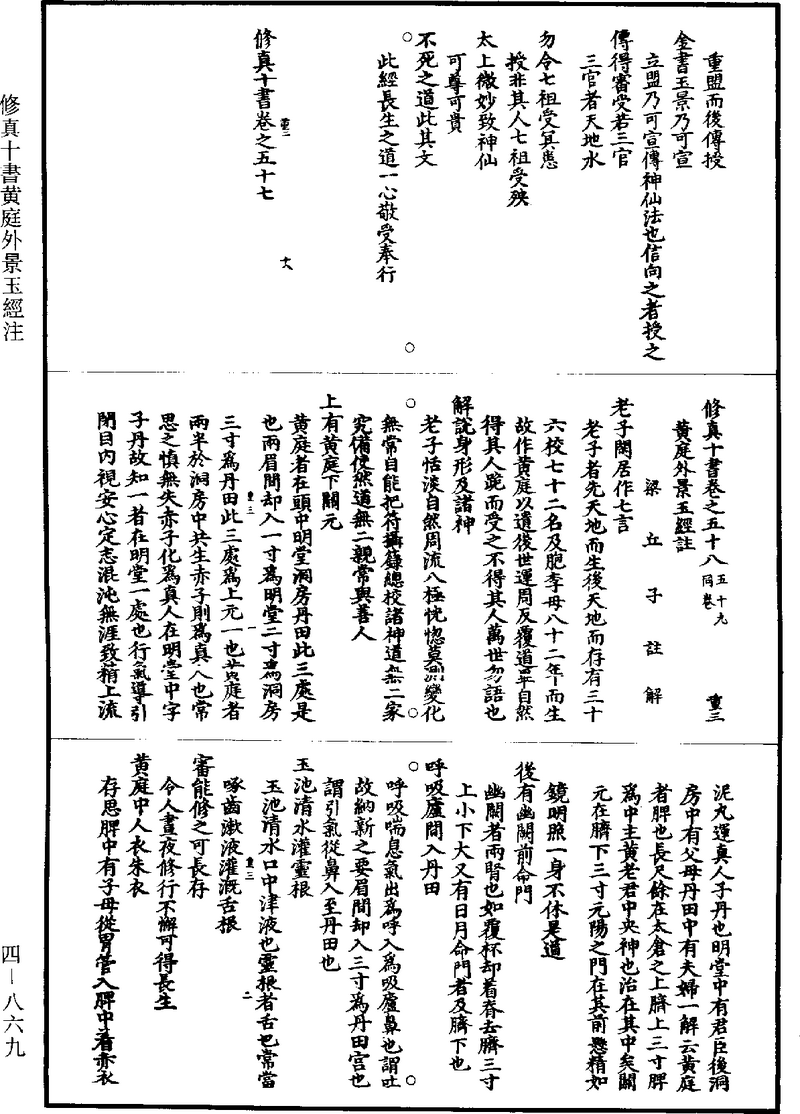 重盟而後傳授
金書玉景乃可宣
立盟乃可宣傳神仙法也信向之者授之
傳得審受若三官
三官者天地水
勿令七祖受冥患
授非其人七祖受殃
太上微妙致神仙
可尊可貴
不死之道此其文
此經長生之道一心敬受奉行
重二 十八
修真十書卷之五十七
修真十書卷之五十八 五十九同卷 重三
黃庭外景玉經註
梁丘子註解
老子閑居作七言
老子者先天地而生後天地而存有三十
六校七十二名及胞李母八十二年而生
故作黃庭以遺後世運周反覆道畢自然
得其人跪而受之不得其人萬世勿語也
解說身形及諸神
老子恬淡自然周流八極恍惚莫測變化
無常自能把符攝籙總校諸神道無二家
究備使然道無二親常與善人
上有黃庭下關元
黃庭者在頭中明堂洞房丹田此三處是
也兩眉間却入一寸為明堂二寸為洞房
重三 一
三寸為丹田此三處為上元一也黃庭者
兩半於洞房中共生赤子則為真人也常
思之慎無失赤子化為真人在明堂中字
子丹故知一者在明堂一處也行氣導引
閉目內視安心定志混沌無涯致精上流
泥丸運真人子丹也明堂中有君臣後洞
房中有父母丹田中有夫婦一解云黃庭
者脾也長尺餘在太倉之上臍上三寸脾
為中主黃老君中央神也治在其中矣關
元在臍下三寸元陽之門在其前懸精如
鏡明照一身不休是道
後有幽闕前命門
幽闕者兩腎也如覆杯却着脊去臍三寸
上小下大又有日月命門者及臍下也
呼吸廬間入丹田
呼吸喘息氣出為呼入為吸廬鼻也謂吐
故納新之要眉間却入三寸為丹田宮也
謂引氣從鼻入至丹田也
玉池清水灌靈根
玉池清水口中津液也靈根者舌也常當
重三 二
啄齒漱液灌溉舌根
審能修之可長存
令人晝夜修行不懈可得長生
黃庭中人衣朱衣
存思脾中有子母從胃管入脾中着赤衣
修真十書黃庭外景玉經注
四—八六九